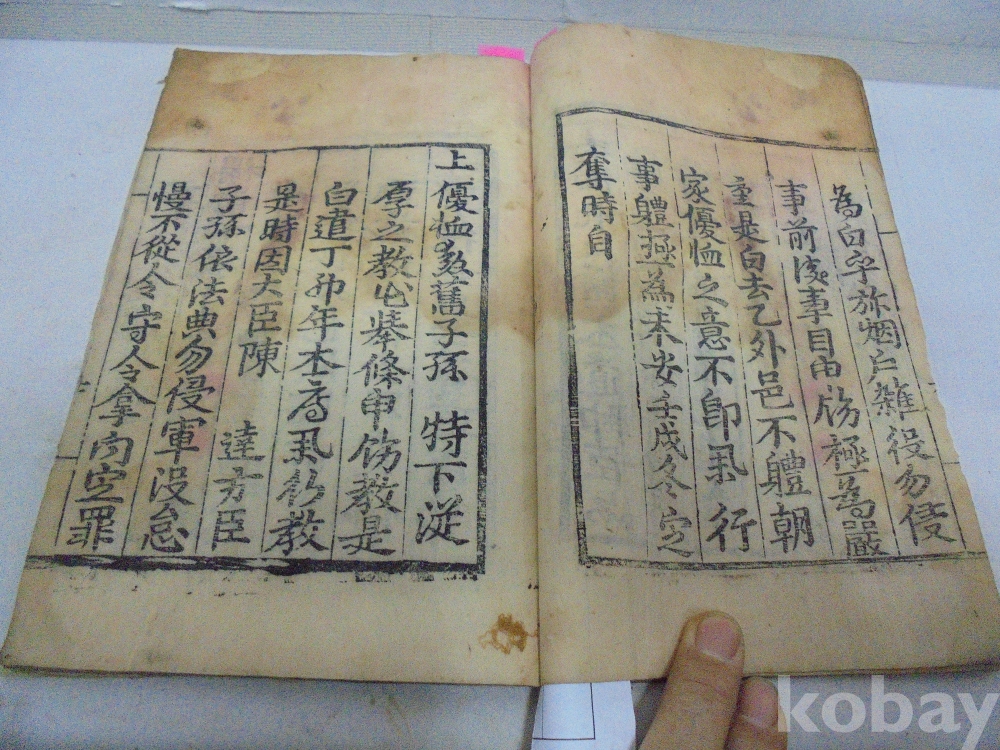 為白乎旀烟戶雜役勿侵
事前後事目申飭極為嚴
重是白去乙外邑不體朝
家優恤之意不卽奉行
事軆極為未安壬戌令定
奪時自
上優恤勳舊子孫 特下從
厚之教必擧條申飭教是
白遣丁卯年本府承傳教
是時因大臣陳 達方臣
子孫依法典勿侵軍役怠
慢不從令守令拿問定罪
kobay